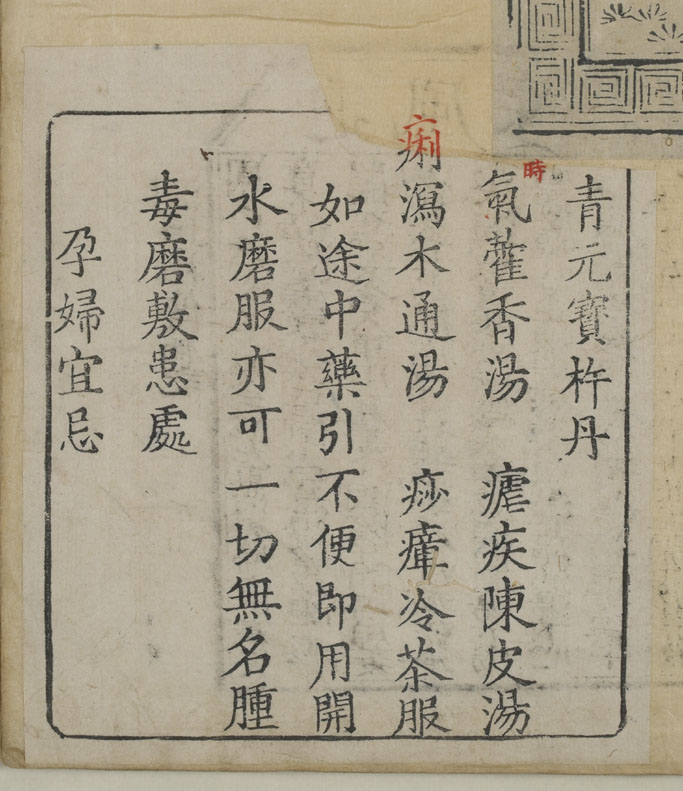 青元寶杵丹
時氣藿香湯　瘧疾陳皮湯
痢瀉木通湯　痧瘴冷茶服
如途中藥引不便即用開
水磨服亦可一切無名腫
毒磨敷患處
孕婦宜忌